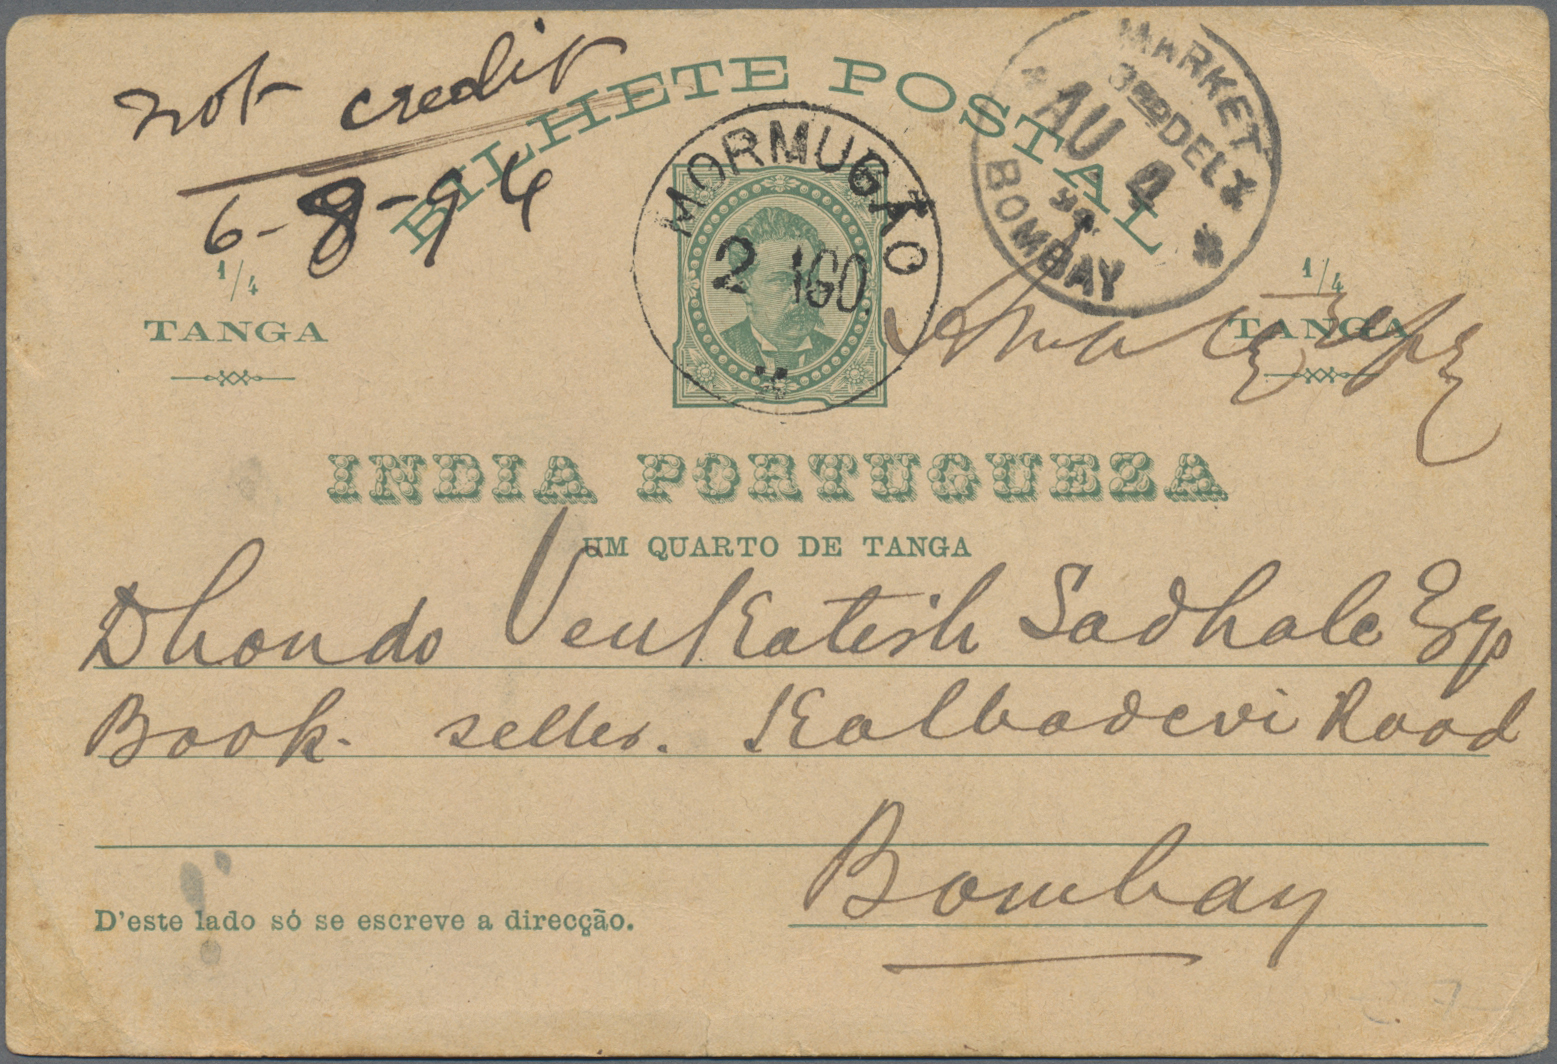 not credit
6-8-94
BILHETE POSTAL
MORMUGÃO
2 AGO
MARKET
3RD DEL Y
AU 4
94
BOMBAY
1/4
TANGA
1/4
TANGA
INDIA PORTUGUEZA
UM QUARTO DE TANGA
Dhondo Venkatesh Sadhale Esq
Book-seller. Kalbadevi Road
Bombay
D'este lado só se escreve a direcção.